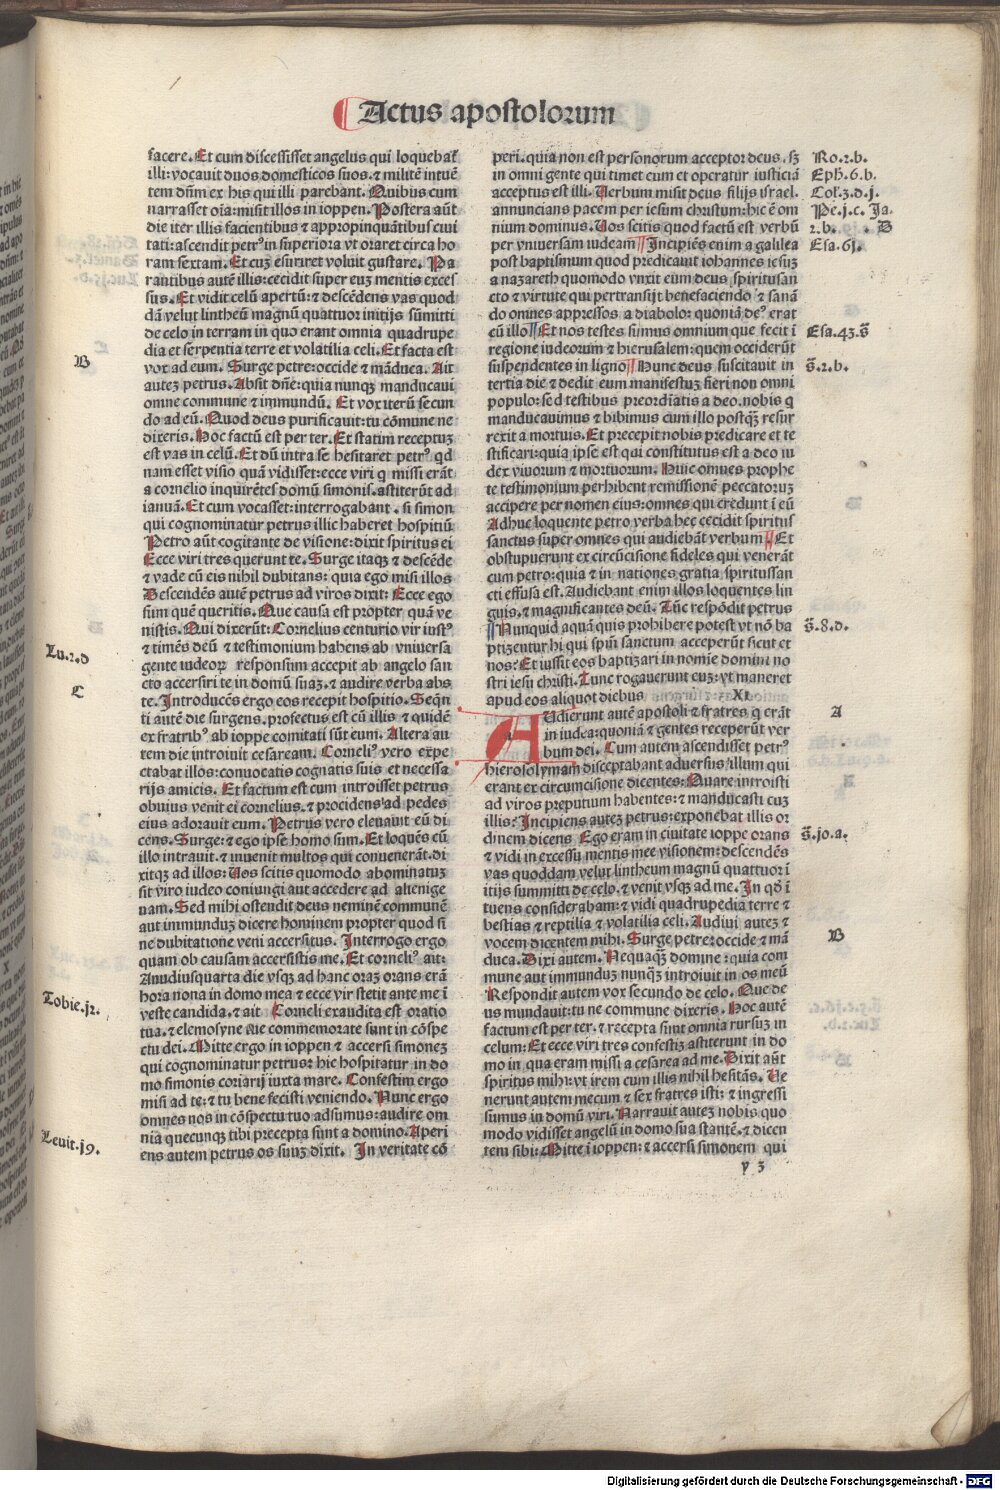 Actus apostolorum
facere. Et cum discessisset angelus qui loquebat᷑
illi: vocauit duos domesticos suos. ⁊ militē ҭtuē
tem dn̄m ex his qui illi parebant. Quibus cum
narrasset oīa: misit illos in ioppen. Postera aūt
die iter illis facientibus ⁊ appropinquātibus ciui
tati: ascendit petrꝰ in superiora vt oraret circa ho
ram sextam. Et cuꝫ esuriret voluit gustare. Pa
rantibus autē illis: cecidit super euꝫ mentis exces
sus. Et vidit celū apertū: ⁊ descēdens vas quod
dā velut lintheū magnū quattuor initijs sūmitti
de celo in terram in quo erant omnia quadrupe
dia et serpentia terre et volatilia celi. Et facta est
B
vox ad eum. Surge petre: occide ⁊ māduca. Ait
auteꝫ petrus. Absit dn̄e: quia nunqꝫ manducaui
omne commune ⁊ immundū. Et vox iterū secun
do ad eū. Quod deus purificauit: tu cōmune ne
dixeris. Hoc factū est per ter. Et statim receptuꝫ
est vas in celū. Et dū intra se hesitaret petrꝰ qd
nam esset visio quā vidisset: ecce viri q missi erāt
a cornelio inquirētes domū simonis. astiterūt ad
ianuā. Et cum vocasset: interrogabant. si simon
qui cognominatur petrus illic haberet hospitiū
Petro aūt cogitante de visione: dixit spiritus ei
Ecce viri tres querunt te. Surge itaqꝫ ⁊ descēde
⁊ vade cū eis nihil dubitans: quia ego misi illos
Descendēs autē petrus ad viros dixit: Ecce ego
sum quē queritis. Que causa est propter quā ve
nistis. Qui dixerūt: Cornelius centurio vir iustꝰ
Lu.2.d
⁊ timēs deū ⁊ testimonium habens ab vniuersa
gente iudeoꝝ responsum accepit ab angelo san
C
cto accersiri te in domū suaꝫ. ⁊ audire verba abs
te. Introducēs ergo eos recepit hospitio. Seqn̄
ti autē die surgens. profectus est cū illis ⁊ quidē
ex fratribꝰ ab ioppe comitati sūt eum. Altera au
tem die introiuit cesaream. Corneliꝰ vero expe
ctabat illos: conuocatis cognatis suis et necessa
rijs amicis. Et factum est cum introisset petrus
obuius venit ei cornelius. ⁊ procidens ad pedes
eius adorauit eum. Petrus vero eleuauit eū di
cens. Surge: ⁊ ego ipse homo sum. Et loquēs cū
illo intrauit. ⁊ inuenit multos qui conuenerāt. di
xitqꝫ ad illos: Uos scitis quomodo abominatuꝫ
sit viro iudeo coniungi aut accedere ad alienige
nam. Sed mihi ostendit deus neminē communē
aut immunduꝫ dicere hominem propter quod si
ne dubitatione veni accersitus. Interrogo ergo
quam ob causam accersistis me. Et corneliꝰ ait:
Anudiusquarta die vsqꝫ ad hanc oraꝫ orans erā
Tobie.j2.
hora nona in domo mea ⁊ ecce vir stetit ante me ī
veste candida. ⁊ ait Corneli exaudita est oratio
tua. ⁊ elemosyne tue commemorate sunt in cōspe
ctu dei. Mitte ergo in ioppen ⁊ accersi simoneꝫ
qui cognominatur petrus: hic hospitatur in do
mo simonis coriarij iuxta mare. Confestim ergo
misi ad te: ⁊ tu bene fecisti veniendo. Nunc ergo
omnes nos in cōspectu tuo adsumus: audire om
nia quecunqꝫ tibi precepta sunt a domino. Aperi
Leuit.j9.
ens autem petrus os suuꝫ dixit. In veritate cō
peri. quia non est personorum acceptor deus. sꝫ
Ro.2.b.
in omni gente qui timet eum et operatur iusticiā
Eph.6.b.
acceptus est illi. Uerbum misit deus filijs israel.
Col.3.d.j.
annuncians pacem per iesum christum: hic ē om
Pe.j.c. Ja.
nium dominus. Uos scitis quod factū est verbū
2.b. D
per vniuersam iudeam Incipiēs enim a galilea
Esa.6j.
post baptismum quod predicauit iohannes iesuꝫ
a nazareth quomodo vnxit eum deus spiritusan
cto ⁊ virtute qui pertransijt benefaciendo ⁊ sanā
do omnes oppressos a diabolo: quoniā deꝰ erat
cū illo Et nos testes sumus omnium que fecit ī
Esa.43.s̄
regione iudeorum ⁊ hierusalem: quem occiderūt
suspendentes in ligno Hunc deus suscitauit in
s̄.2.b.
tertia die ⁊ dedit eum manifestuꝫ fieri non omni
populo: sed testibus preordīatis a deo. nobis q
manducauimus ⁊ bibimus cum illo postqꝫ resur
rexit a mortuis. Et precepit nobis predicare et te
stificari: quia ipse est qui constitutus est a deo iu
dex viuorum ⁊ mortuorum. Huic omnes prophe
te testimonium perhibent remissionē peccatoruꝫ
accipere per nomen eius: omnes qui credunt ī eū
Adhuc loquente petro verba hec cecidit spiritus
sanctus super omnes qui audiebāt verbum Et
obstupuerunt ex circūcisione fideles qui venerāt
cum petro: quia ⁊ in nationes gratia spiritussan
cti effusa est. Audiebant enim illos loquentes lin
guis. ⁊ magnificantes deū. Tūc respōdit petrus
Nunquid aquā quis prohibere potest vt nō ba
s̄.8.d.
ptizentur hi qui spm̄ sanctum acceperūt sicut et
nos? Et iussit eos baptizari in nomīe domini no
stri iesu christi. Tunc rogauerunt euꝫ: vt maneret
apud eos aliquot diebus XI
Audierunt autē apostoli ⁊ fratres q erāt
A
in iudea: quoniā ⁊ gentes receperūt ver
bum dei. Cum autem ascendisset petrꝰ
hierosolymam disceptabant aduersus illum qui
erant ex circumcisione dicentes: Quare introisti
ad viros preputium habentes: ⁊ manducasti cuꝫ
illis? Incipiens auteꝫ petrus: exponebat illis or
dinem dicens Ego eram in ciuitate ioppe orans
s̄.jo.a.
⁊ vidi in excessu mentis mee visionem: descendēs
vas quoddam velut lintheum magnū quattuor ī
itijs summitti de celo. ⁊ venit vsqꝫ ad me. In qd̄ ī
tuens considerabam: ⁊ vidi quadrupedia terre ⁊
bestias ⁊ reptilia ⁊ volatilia celi. Audiui auteꝫ ⁊
B
vocem dicentem mihi. Surge petre: occide ⁊ mā
duca. Dixi autem. Nequaqꝫ domine: quia com
mune aut immunduꝫ nunqꝫ introiuit in os meū
Respondit autem vox secundo de celo. Que de
us mundauit: tu ne commune dixeris. Hoc autē
factum est per ter. ⁊ recepta sunt omnia rursuꝫ in
celum: Et ecce viri tres confestiꝫ astiterunt in do
mo in qua eram missi a cesarea ad me. Dixit aūt
spiritus mihi: vt irem cum illis nihil hesitās. Ue
nerunt autem mecum ⁊ sex fratres isti: ⁊ ingressi
sumus in domū viri. Narrauit auteꝫ nobis quo
modo vidisset angelū in domo sua stantē. ⁊ dicen
tem sibi: Mitte ī ioppen: ⁊ accersi simonem qui
y 3
Digitalisierung gefördert durch die Deutsche Forschungsgemeinschaft - DFG